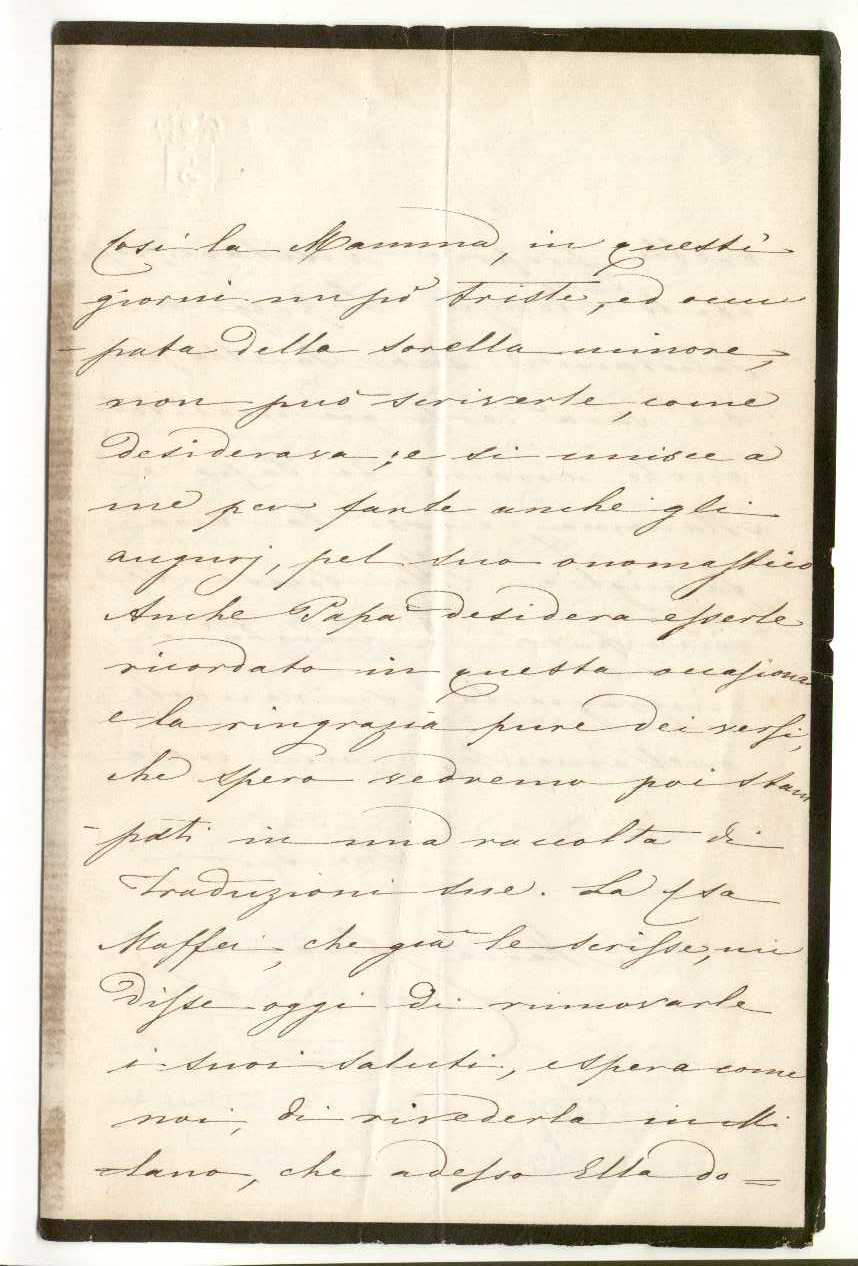 Così la Mamma, in questi
giorni un pò triste, ed occu
- pata della sorella minore,
non può scriverle, come
desiderava; e si unisce a
me per farle anche gli
augurj, pel suo onomastico
Anche Papà desidera esserle
ricordato in questa occasione
e la ringrazia pure dei versi,
che spero vedremo poi stam
- pati in una raccolta di
Traduzioni sue. La Csa
Maffei, che già le scrisse, mi
disse oggi di rinnovarle
i suoi saluti, e spera come
noi, di rivederla in Mi
- lano, che adesso Ella do =